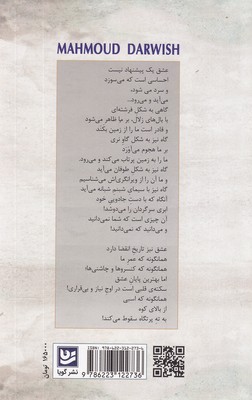 MAHMOUD DARWISH
عشق یک پیشنهاد نیست
احساسی است که می‌سوزد
و سرد می شود،
می‌آید و می‌رود...
گاهی به شکل فرشته‌ای
با بال‌های زلال، بر ما ظاهر می‌شود
و قادر است ما را از زمین بکند
گاه نیز به شکل گاو نری
بر ما هجوم می‌آورد
ما را به زمین پرتاب می‌کند و می‌رود.
گاه نیز به شکل طوفان می‌آید
و ما آن را از ویرانگری‌اش می‌شناسیم
و گاه نیز با سیمای شبنم شبانه می‌آید
آنگاه که با دست جادویی خود
ابری سرگردان را می‌دوشد!
آن چیزی است که شما نمی‌دانید
و می‌دانید که نمی‌دانید!
عشق نیز تاریخ انقضا دارد
همانگونه که عمر ما
همانگونه که کنسروها و چاشنی‌ها؛
اما بهترین پایان عشق
سکته‌ی قلبی است در اوج نیاز و بی‌قراری!
همانگونه که اسبی
از بالای کوه
به ته پرتگاه سقوط می‌کند!
۱۶۵۰۰۰ تومان
ISBN: 978-622-312-273-6
9 786223 122736
نشر گویا